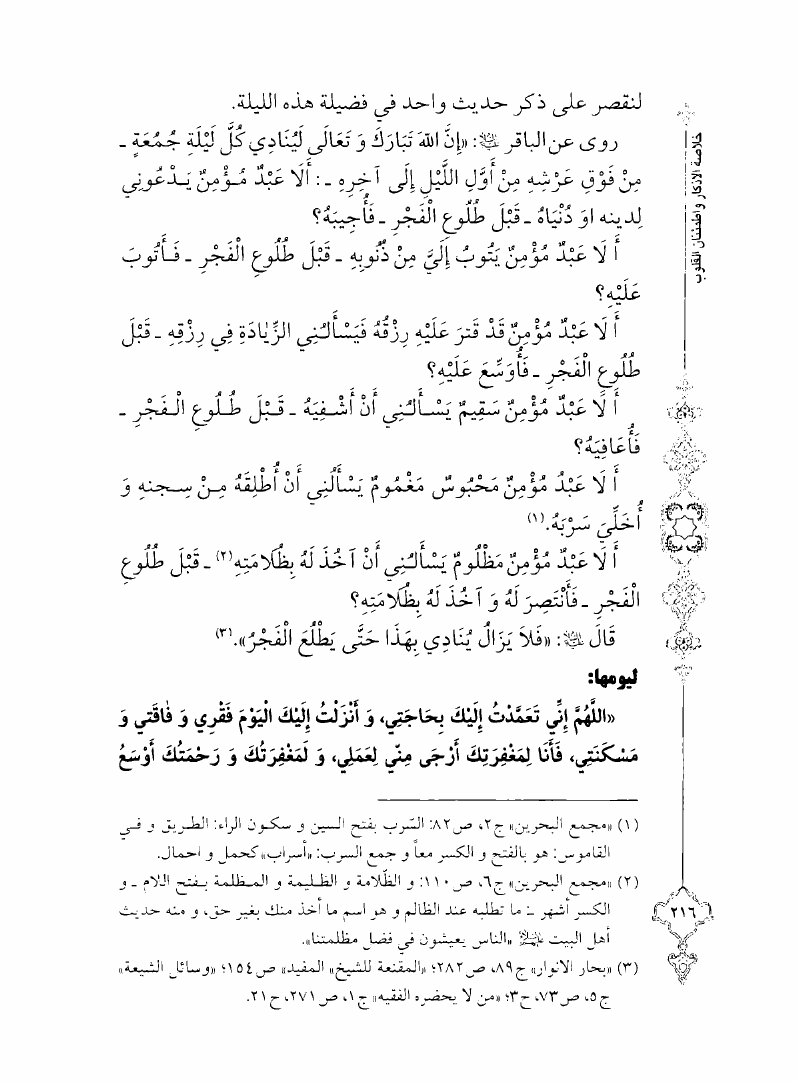 لنقصر على ذكر حديث واحد في فضيلة هذه الليلة.
روى عن الباقر عليه السلام: «إِنَّ اللّهَ تَبَارَكَ وَ تَعَالَى لَيُنَادِي كُلَّ لَيْلَةِ جُمُعَةٍ ـ
مِنْ فَوْقِ عَرْشِهِ مِنْ أَوَّلِ اللَّيْلِ إِلَى آخِرِهِ ـ: أَلَا عَبْدٌ مُؤْمِنٌ يَدْعُونِي
لِدينه اوَ دُنْيَاهُ ـ قَبْلَ طُلُوعِ الْفَجْرِ ـ فَأُجِيبَهُ؟
أَ لَا عَبْدٌ مُؤْمِنٌ يَتُوبُ إِلَيَّ مِنْ ذُنُوبِهِ ـ قَبْلَ طُلُوعِ الْفَجْرِ ـ فَأَتُوبَ
عَلَيْهِ؟
أَ لَا عَبْدٌ مُؤْمِنٌ قَدْ قَترَ عَلَيْهِ رِزْقُهُ فَيَسْأَلُنِي الزِّيَادَةِ فِي رِزْقِهِ ـ قَبْلَ
طُلُوعِ الْفَجْرِ ـ فَأُوَسِّعَ عَلَيْهِ؟
أَ لَا عَبْدٌ مُؤْمِنٌ سَقِيمٌ يَسْأَلُنِي أَنْ أَشْفِيَهُ ـ قَبْلَ طُلُوعِ الْفَجْرِ ـ
فَأُعَافِيَهُ؟
أَ لَا عَبْدُ مُؤْمِنٌ مَحْبُوسٌ مَغْمُومٌ يَسْأَلُنِي أَنْ أُطْلِقَهُ مِنْ سِجنهِ وَ
أُخَلِّيَ سَرْبَهُ.(١)
أَ لَا عَبْدٌ مُؤْمِنٌ مَظْلُومٌ يَسْأَلُنِي أَنْ آخُذَ لَهُ بِظُلَامَتِهِ(٢) ـ قَبْلَ طُلُوعِ
الْفَجْرِ ـ فَأَنْتَصِرَ لَهُ وَ آخُذَ لَهُ بِظُلَامَتِهِ؟
قَالَ عليه السلام: «فَلَا يَزَالُ يُنَادِي بِهَذَا حَتَّى يَطْلُعَ الْفَجْرُ».(٣)
ليومها:
«اللَّهُمَّ إِنِّي تَعَمَّدْتُ إِلَيْكَ بِحَاجَتِي، وَ أَنْزَلْتُ إِلَيْكَ الْيَوْمَ فَقْرِي وَ فَاقَتي وَ
مَسْكَنَتِي، فَأَنَا لِمَغْفِرَتِكَ أَرْجَى مِنِّي لِعَمَلِي، وَ لَمَغْفِرَتُكَ وَ رَحْمَتُكَ أَوْسَعُ
(١) «مجمع البحرين» ج٢، ص٨٢: السّرب بفتح السين و سكون الراء: الطريق و في
القاموس: هو بالفتح و الكسر معاً و جمع السرب: «أسراب» كحمل و احمال.
(٢) «مجمع البحرين» ج٦، ص١١٠: و الظّلامة و الظليمة و المظلمة بفتح اللام ـ و
الكسر أشهر ـ: ما تطلبه عند الظالم و هو اسم ما أخذ منك بغير حق، و منه حديث
أهل البيت عليهم السلام «الناس يعيشون في فضل مظلمتنا».
(٣) «بحار الانوار» ج٨٩، ص٢٨٢؛ «المقنعة للشيخ» المفيد» ص١٥٤؛ «وسائل الشيعة»
ج٥، ص٧٣، ح٣؛ «من لا يحضره الفقيه» ج١، ص٢٧١، ح٢١.
خلاصة الاذكار و اطمئنان القلوب
٢١٦